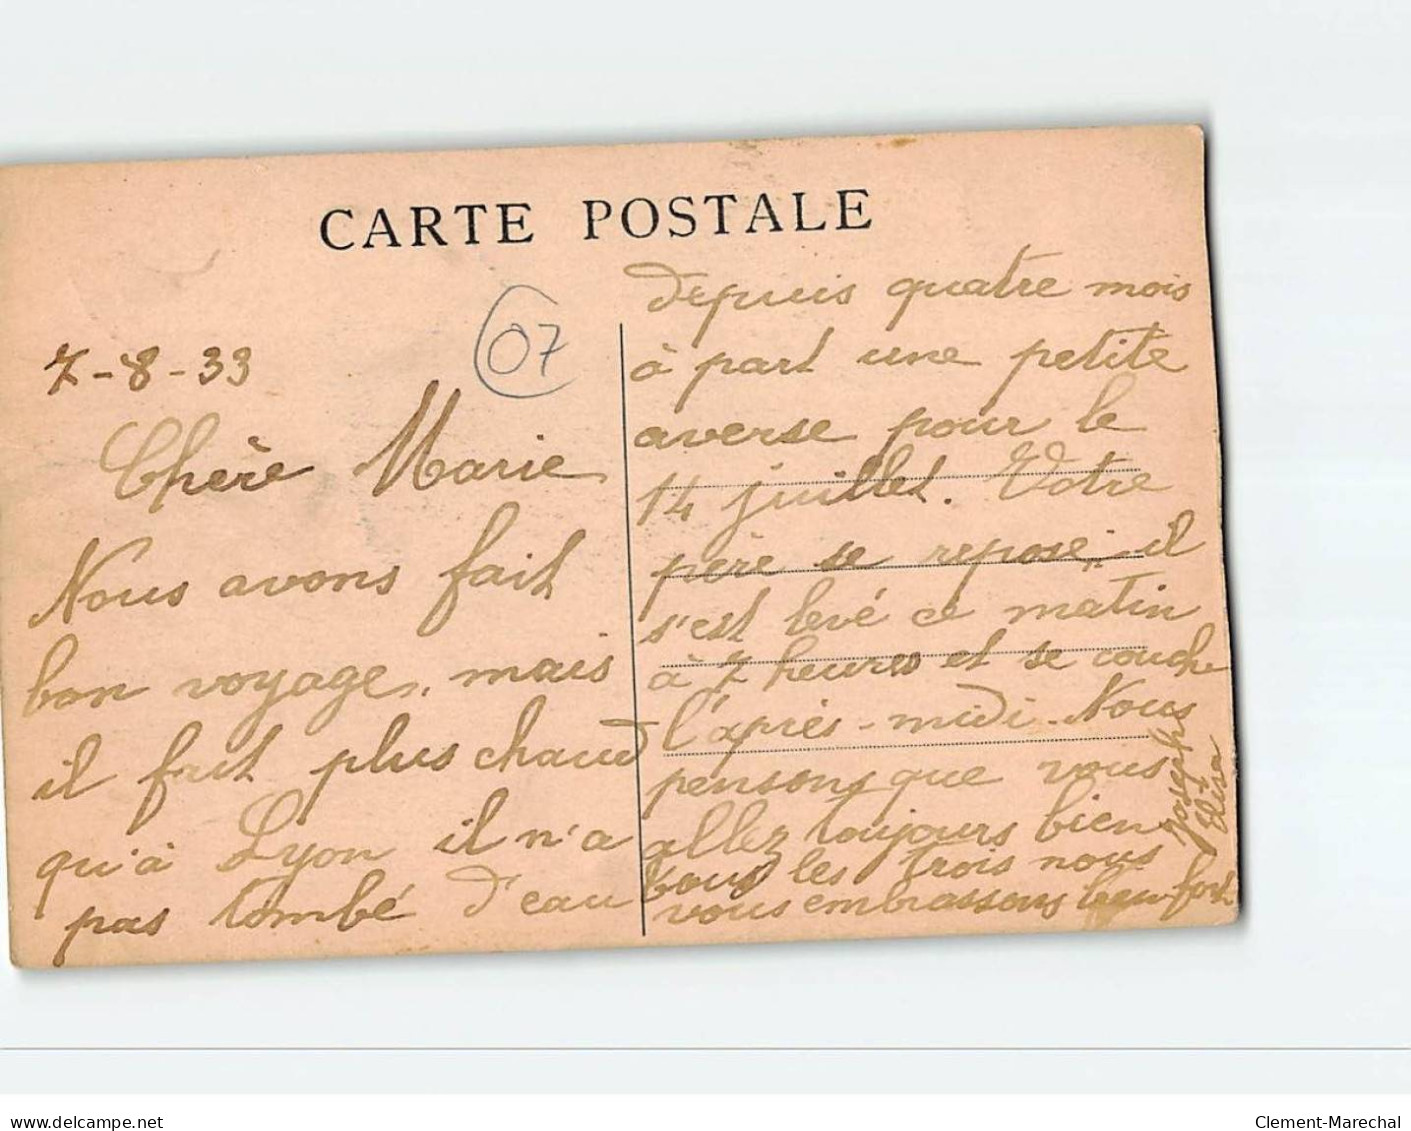 CARTE POSTALE
07
7-8-33
Chère Marie
Nous avons fait
bon voyage, mais
il fait plus chaud
qu'à Lyon il n'a
pas tombé d'eau
depuis quatre mois
à part une petite
averse pour le
14 juillet. Votre
père se repose, il
s'est levé ce matin
à 7 heures et se couche
l'après-midi. Nous
pensons que vous
allez toujours bien
tous les trois nous
vous embrassons bien fort
Joseph
Elisa
delcampe.net
Clement-Marechal